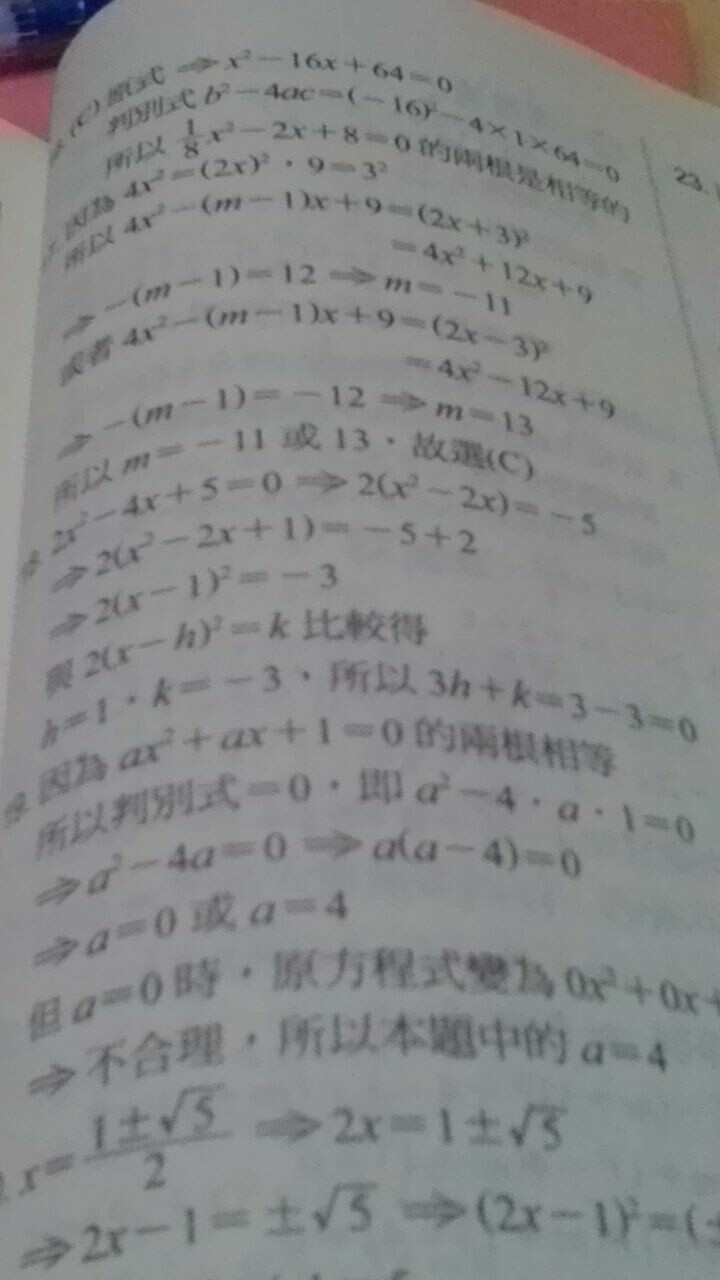 (C) 原式 ⇒ x²－16x＋64＝0
判別式 b²－4ac＝(－16)²－4×1×64＝0
所以 1/8 x²－2x＋8＝0 的兩根是相等的
因為 4x²＝(2x)²，9＝3²
所以 4x²－(m－1)x＋9＝(2x＋3)²
＝4x²＋12x＋9
⇒ －(m－1)＝12 ⇒ m＝－11
或者 4x²－(m－1)x＋9＝(2x－3)²
＝4x²－12x＋9
⇒ －(m－1)＝－12 ⇒ m＝13
所以 m＝－11 或 13，故選(C)
2x²－4x＋5＝0 ⇒ 2(x²－2x)＝－5
⇒ 2(x²－2x＋1)＝－5＋2
⇒ 2(x－1)²＝－3
與 2(x－h)²＝k 比較得
h＝1，k＝－3，所以 3h＋k＝3－3＝0
因為 ax²＋ax＋1＝0 的兩根相等
所以判別式＝0，即 a²－4．a．1＝0
⇒ a²－4a＝0 ⇒ a(a－4)＝0
⇒ a＝0 或 a＝4
但 a＝0 時，原方程式變為 0x²＋0x＋
⇒ 不合理，所以本題中的 a＝4
x＝(1±√5)/2 ⇒ 2x＝1±√5
⇒ 2x－1＝±√5 ⇒ (2x－1)²＝(±
23.